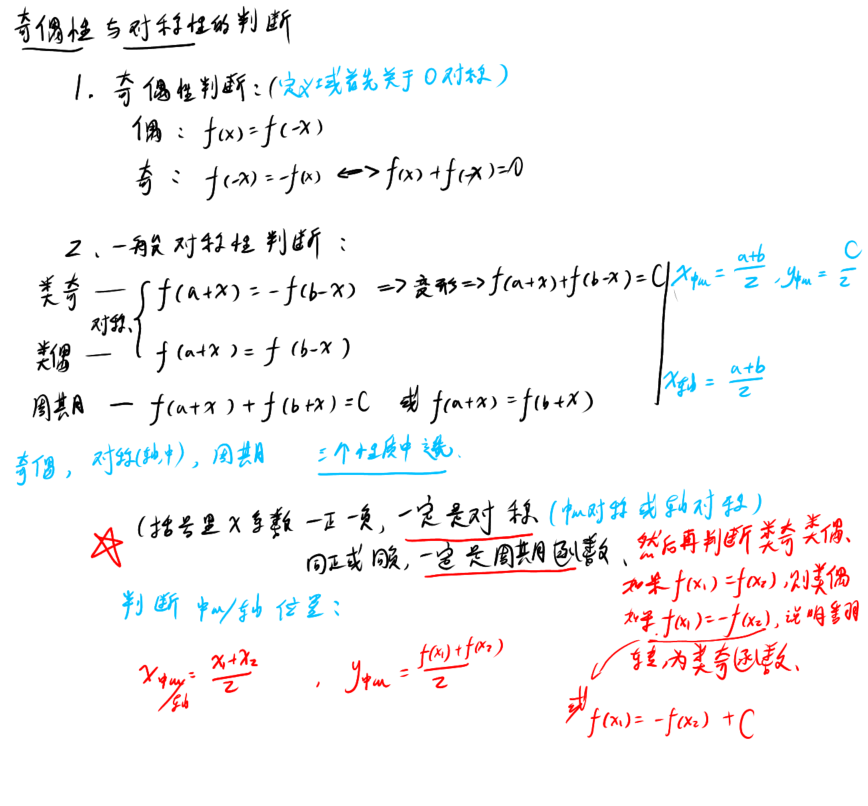 奇偶性与对称性的判断
1. 奇偶性判断:(定义域首先关于0对称)
偶: f(x)=f(-x)
奇: f(-x)=-f(x) <-> f(x)+f(-x)=0
2、一般对称性判断:
类奇 — f(a+x)=-f(b-x) => 变形 => f(a+x)+f(b-x)=C x中心=(a+b)/2, y中心=C/2
对称、
类偶 — f(a+x)=f(b-x) x轴=(a+b)/2
周期 — f(a+x)+f(b+x)=C 或 f(a+x)=f(b+x)
奇偶, 对称(轴,中), 周期 三个性质中选.
☆ (括号里x系数一正一负, 一定是对称 (中心对称或轴对称)
同正或同负, 一定是周期函数、然后再判断类奇类偶、
如果f(x₁)=f(x₂), 则类偶
如果f(x₁)=-f(x₂), 说明翻
转,为类奇函数、
或 f(x₁)=-f(x₂)+C
判断中心/轴位置:
x中心/轴=(x₁+x₂)/2 , y中心=(f(x₁)+f(x₂))/2